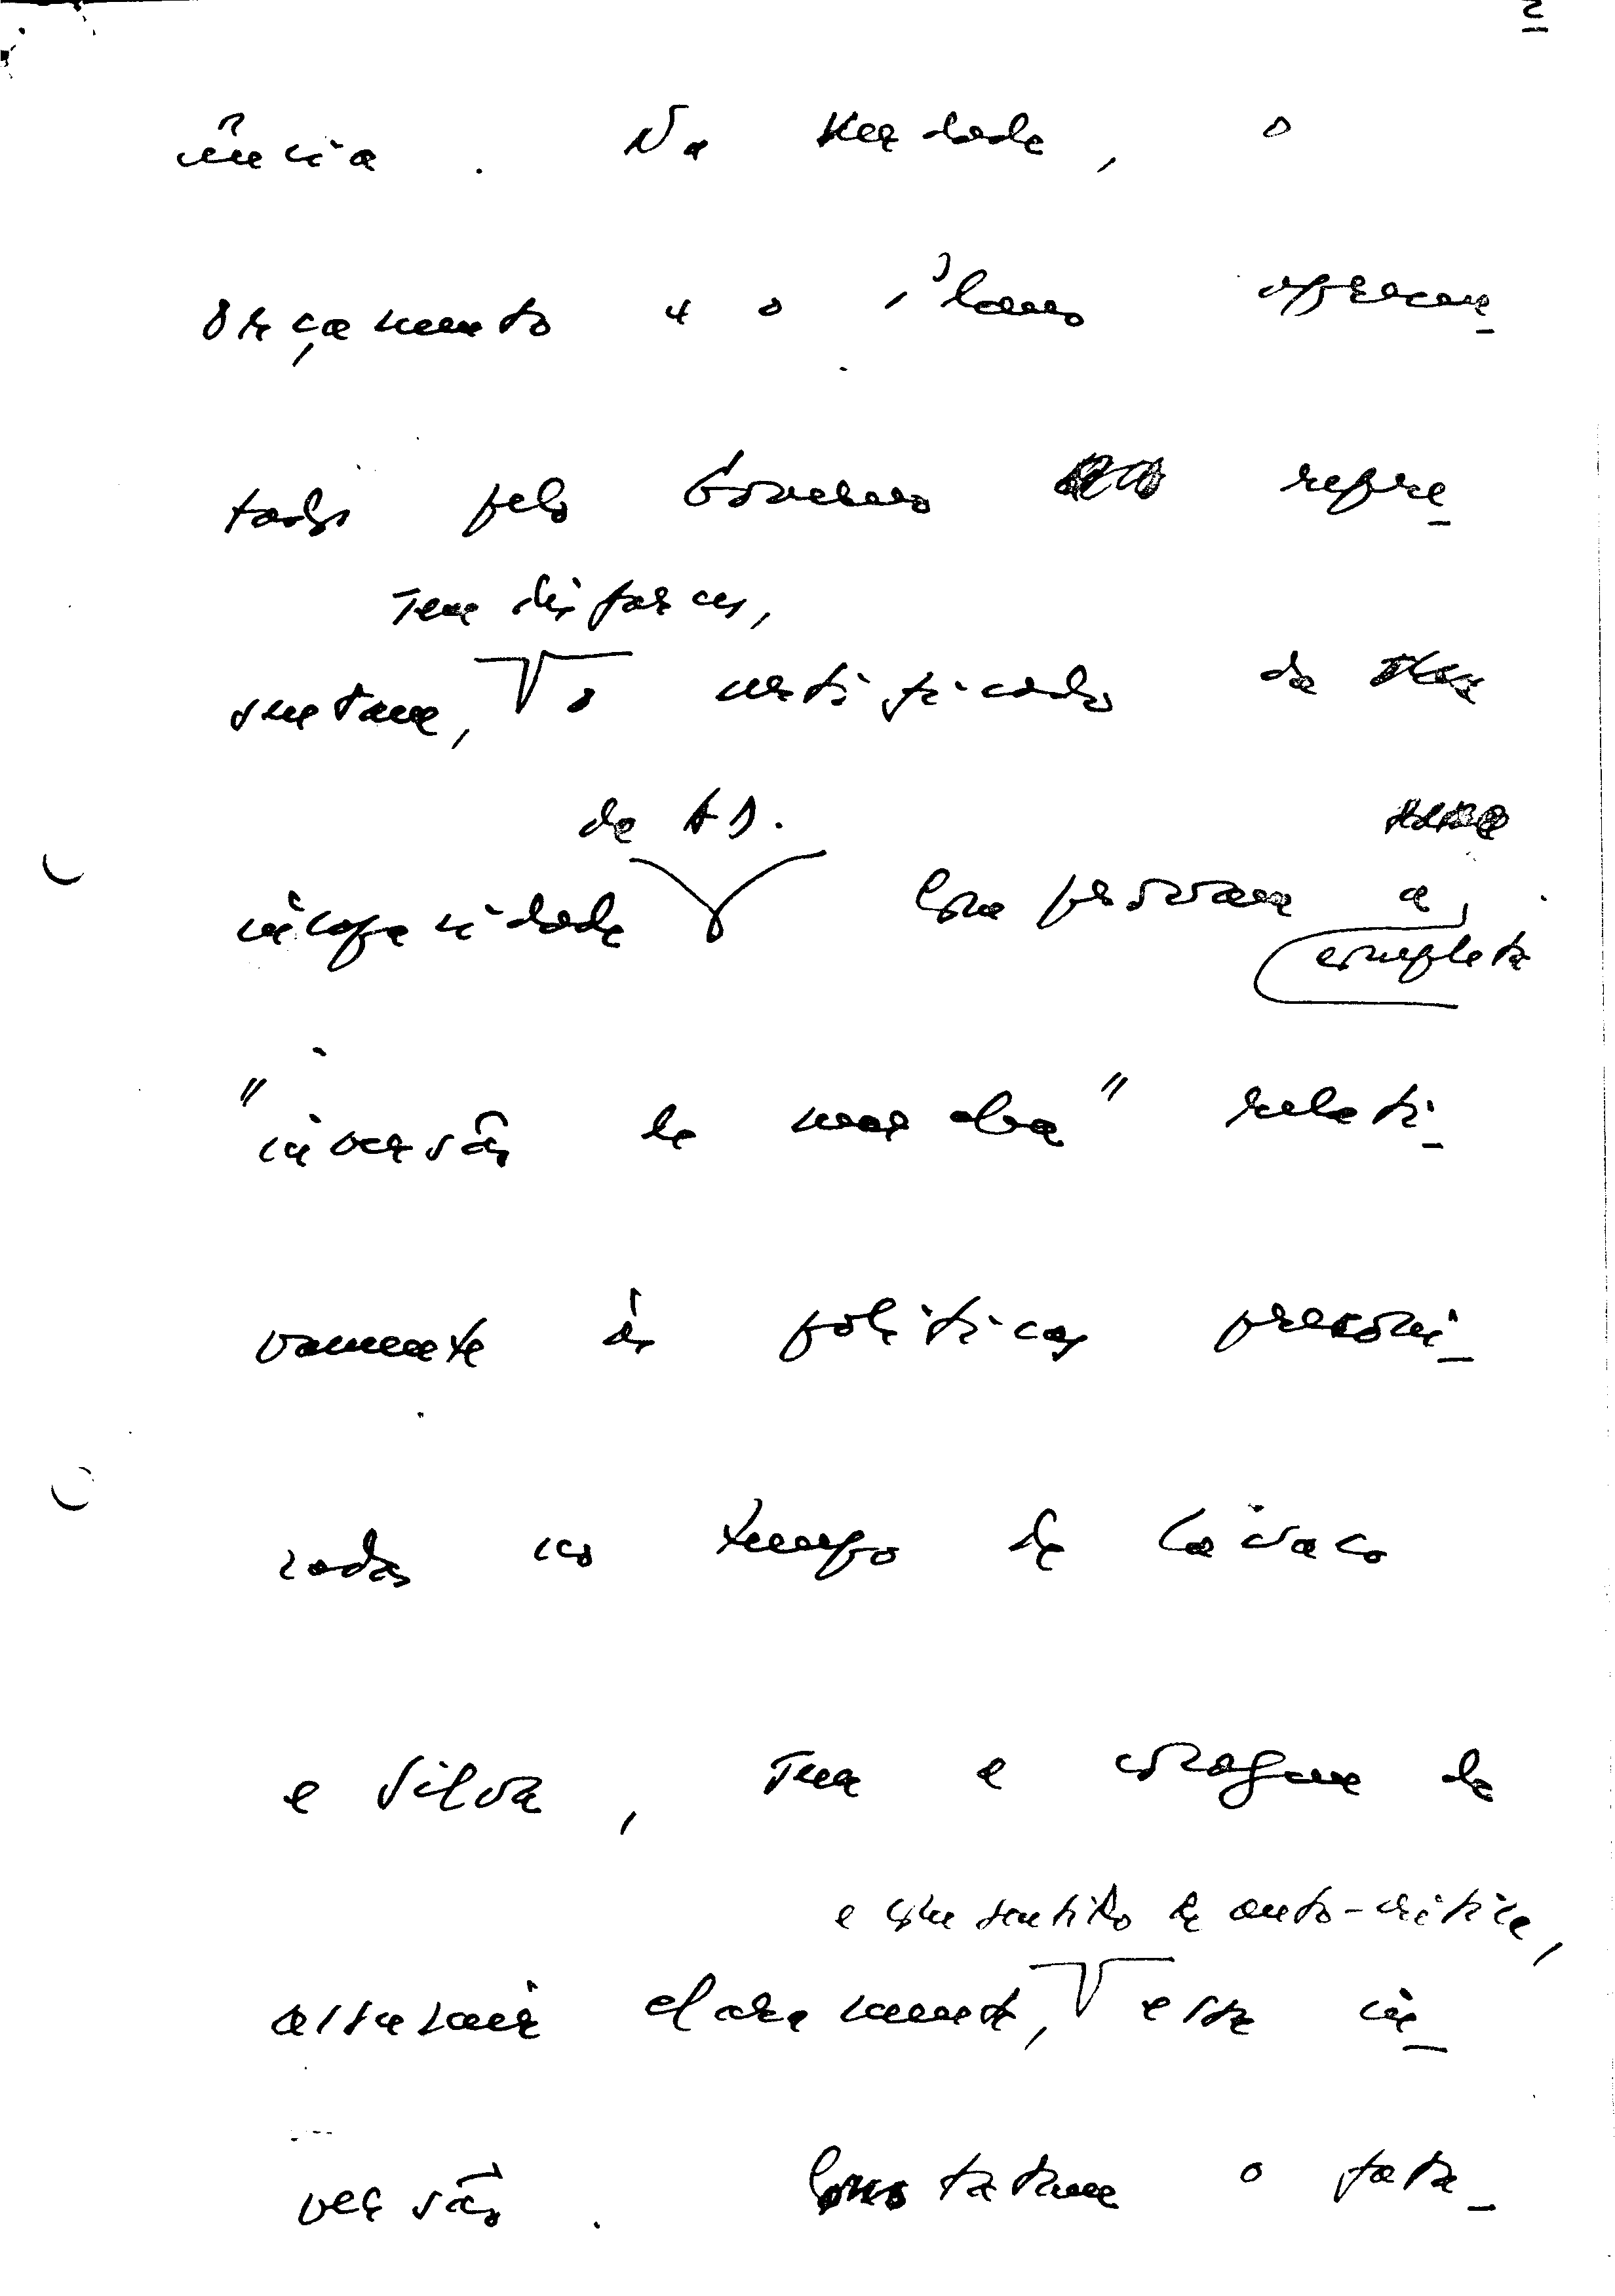 2
ência. Na verdade, o
Orçamento e o Plano apresen-
tados pelo Governo repre-
sem disfarces,
sentam, o certificado da
da AD.
incapacidade Comprovam a
completa
"inversão de marcha" relati-
vamente às políticas preconi-
zadas no tempo de Cavaco
e Silva, sem a coragem de
e com sentido de auto-crítica,
assumir claramente, essa in-
versão. Constatam o fata-